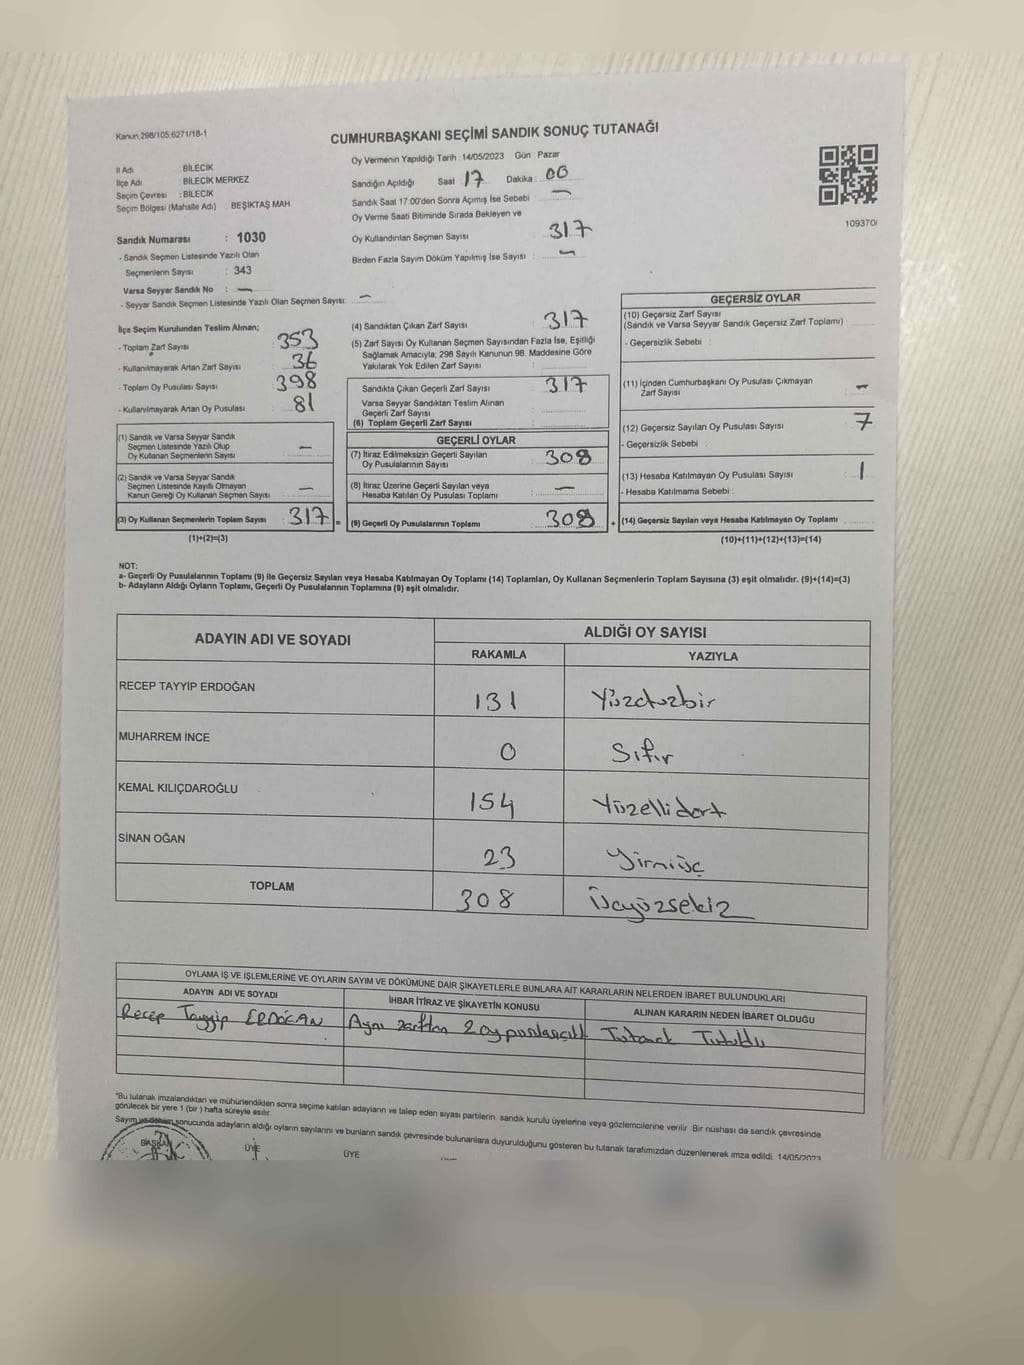 Kanun 298/105 6271/18-1
CUMHURBAŞKANI SEÇİMİ SANDIK SONUÇ TUTANAĞI
Oy Vermenin Yapıldığı Tarih : 14/05/2023 Gün : Pazar
İl Adı : BİLECİK
İlçe Adı : BİLECİK MERKEZ
Seçim Çevresi : BİLECİK
Seçim Bölgesi (Mahalle Adı) : BEŞİKTAŞ MAH.
Sandığın Açıldığı Saat 17 Dakika : 00
Sandık Saat 17:00'den Sonra Açımış İse Sebebi : —
Oy Verme Saati Bitiminde Sırada Bekleyen ve
Oy Kullandırılan Seçmen Sayısı : 317
Birden Fazla Sayım Döküm Yapılmış İse Sayısı : —
109370
Sandık Numarası : 1030
- Sandık Seçmen Listesinde Yazılı Olan
Seçmenlerin Sayısı : 343
Varsa Seyyar Sandık No : —
- Seyyar Sandık Seçmen Listesinde Yazılı Olan Seçmen Sayısı: —
İlçe Seçim Kurulundan Teslim Alınan;
- Toplam Zarf Sayısı : 353
- Kullanılmayarak Artan Zarf Sayısı : 36
- Toplam Oy Pusulası Sayısı : 398
- Kullanılmayarak Artan Oy Pusulası : 81
(1) Sandık ve Varsa Seyyar Sandık
Seçmen Listesinde Yazılı Olup
Oy Kullanan Seçmenlerin Sayısı : —
(2) Sandık ve Varsa Seyyar Sandık
Seçmen Listesinde Kayıtlı Olmayan
Kanun Gereği Oy Kullanan Seçmen Sayısı : —
(3) Oy Kullanan Seçmenlerin Toplam Sayısı : 317 =
(1)+(2)=(3)
(4) Sandıktan Çıkan Zarf Sayısı : 317
(5) Zarf Sayısı Oy Kullanan Seçmen Sayısından Fazla İse, Eşitliği
Sağlamak Amacıyla, 298 Sayılı Kanunun 98. Maddesine Göre
Yakılarak Yok Edilen Zarf Sayısı :
Sandıkta Çıkan Geçerli Zarf Sayısı : 317
Varsa Seyyar Sandıktan Teslim Alınan
Geçerli Zarf Sayısı :
(6) Toplam Geçerli Zarf Sayısı :
GEÇERLİ OYLAR
(7) İtiraz Edilmeksizin Geçerli Sayılan
Oy Pusulalarının Sayısı : 308
(8) İtiraz Üzerine Geçerli Sayılan veya
Hesaba Katılan Oy Pusulası Toplamı : —
(9) Geçerli Oy Pusulalarının Toplamı : 308 +
GEÇERSİZ OYLAR
(10) Geçersiz Zarf Sayısı
(Sandık ve Varsa Seyyar Sandık Geçersiz Zarf Toplamı) :
- Geçersizlik Sebebi :
(11) İçinden Cumhurbaşkanı Oy Pusulası Çıkmayan
Zarf Sayısı : —
(12) Geçersiz Sayılan Oy Pusulası Sayısı : 7
- Geçersizlik Sebebi :
(13) Hesaba Katılmayan Oy Pusulası Sayısı : 1
- Hesaba Katılmama Sebebi :
(14) Geçersiz Sayılan veya Hesaba Katılmayan Oy Toplamı :
(10)+(11)+(12)+(13)=(14)
NOT:
a- Geçerli Oy Pusulalarının Toplamı (9) ile Geçersiz Sayılan veya Hesaba Katılmayan Oy Toplamı (14) Toplamları, Oy Kullanan Seçmenlerin Toplam Sayısına (3) eşit olmalıdır. (9)+(14)=(3)
b- Adayların Aldığı Oyların Toplamı, Geçerli Oy Pusulalarının Toplamına (9) eşit olmalıdır.
ADAYIN ADI VE SOYADI
ALDIĞI OY SAYISI
RAKAMLA YAZIYLA
RECEP TAYYİP ERDOĞAN 131 Yüzotuzbir
MUHARREM İNCE 0 Sıfır
KEMAL KILIÇDAROĞLU 154 Yüzellidört
SİNAN OĞAN 23 Yirmiüç
TOPLAM 308 Üçyüzsekiz
OYLAMA İŞ VE İŞLEMLERİNE VE OYLARIN SAYIM VE DÖKÜMÜNE DAİR ŞİKAYETLERLE BUNLARA AİT KARARLARIN NELERDEN İBARET BULUNDUKLARI
ADAYIN ADI VE SOYADI İHBAR İTİRAZ VE ŞİKAYETİN KONUSU ALINAN KARARIN NEDEN İBARET OLDUĞU
Recep Tayyip ERDOĞAN Aynı zarftan 2 oy pusulası çıktı Tutanak Tutuldu
"Bu tutanak imzalandıktan ve mühürlendikten sonra seçime katılan adayların ve talep eden siyasi partilerin sandık kurulu üyelerine veya gözlemcilerine verilir. Bir nüshası da sandık çevresinde
görülecek bir yere 1 (bir ) hafta süreyle asılır.
Sayım ve döküm sonucunda adayların aldığı oyların sayılarını ve bunların sandık çevresinde bulunanlara duyurulduğunu gösteren bu tutanak tarafımızdan düzenlenerek imza edildi. 14/05/2023
BAŞKAN ÜYE ÜYE